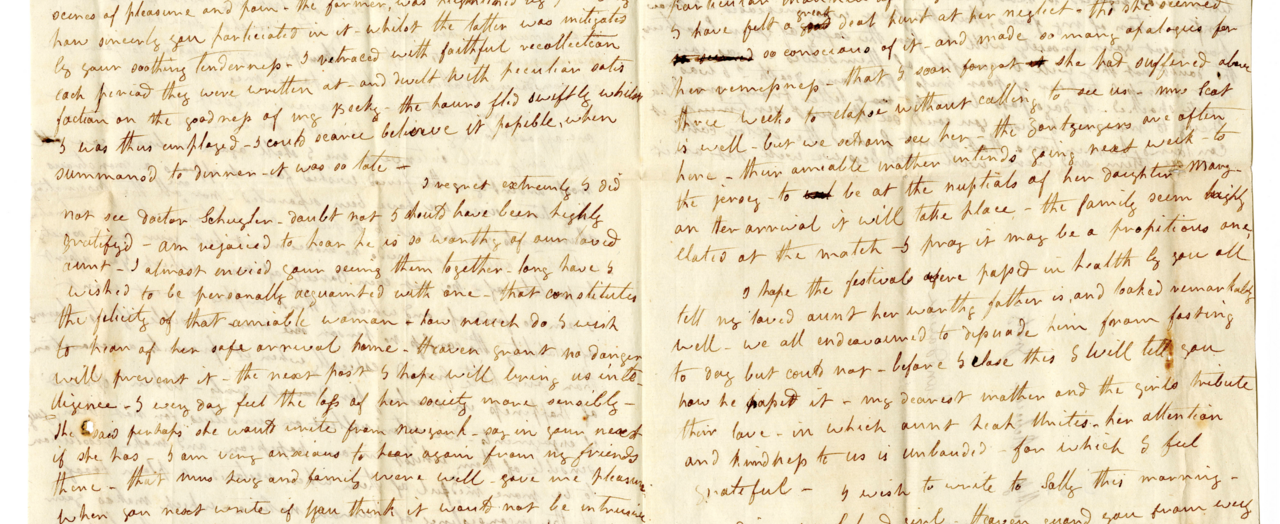 scenes of pleasure and pain - the former, was
how sincerly you participated in it - whilst the latter was mitigated
by your soothing tenderness - I retraced with faithful recollection
each period they were written at - and dwelt with peculiar satis
faction on the goodness of my Becky - the hours fled swiftly whilst
I was thus employed - I could scarce believe it possible, when
summoned to dinner - it was so late -
I regret extremely I did
not see doctor Schuyler - doubt not I should have been highly
gratifyd - am rejoiced to hear he is so worthy of our loved
aunt - I almost envied your seeing them together - long have I
wished to be personally acquainted with one - that constitutes
the felicity of that amiable woman - how much do I wish
to hear of her safe arrival home - Heaven grant no danger
will prevent it - the next post I hope will bring us inte
ligence - I every day feel the loss of her society more sensibly -
She said perhaps she would write from newyork - say in your next
if she has - I am very anxious to hear again from my friends
there - that mrs and family were well - gave me pleasure
when you next write if you think it would not be intrusive
particular
I have felt a great deal hurt at her neglect - tho she seemed
so conscious of it - and made so many apologies for
her remissness - that I soon forgot she had suffered above
three weeks to elapse without calling to see us - mrs
is well - but we seldom see her - the Gontzengers are often
here - their amiable mother intends going next week - to
the jersey - to be at the nuptials of her daughter Mary -
on her arrival it will take place - the family seem highly
elated at the match - I pray it may be a propitious one,
I hope the festivals were passd in health by you all
tell my loved aunt her worthy father is, and looked remarkably
well - we all endeavoured to dissuade him from fasting
to day but could not - before I close this I will tell you
how he passd it - my dearest mother and the girls tribute
their love - in which aunt Unites - her attention
and kindness to us is unbouded - for which I feel
grateful - I wish to write to Sally this morning -
girl - Heaven guard you from every